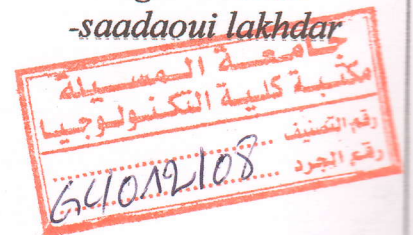 -saadaoui lakhdar
جامعة المسيلة
مكتبة كلية التكنولوجيا
رقم التصنيف
رقم الجرد
G4/012/08